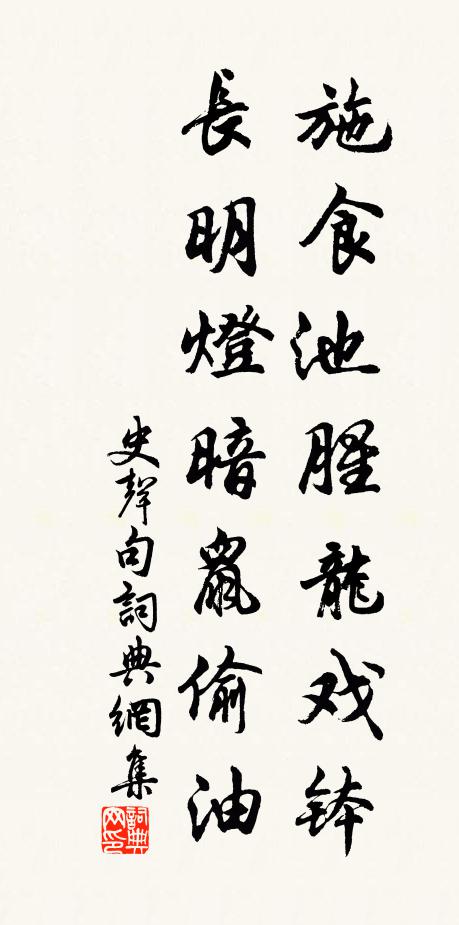 施食池腥龍戏鉢
長明燈暗鼠偷油
史聲句詞典網集
詞典
网印